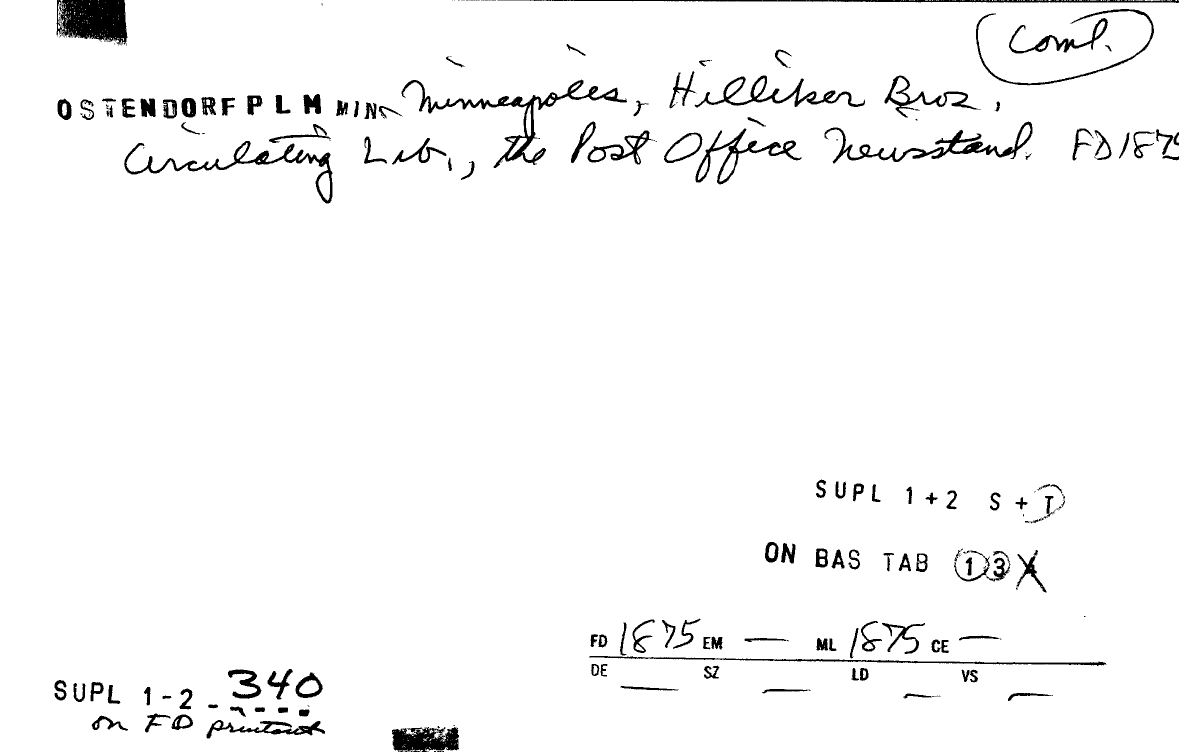 Coml.
OSTENDORF P L M MINN Minneapolis, Hilliker Bros,
Circulating Lib., the Post Office Newsstand. FD 1875
SUPL 1+2 S + T
ON BAS TAB 1 3 4
FD 1875 EM — ML 1875 CE —
DE — SZ — LD — VS —
SUPL 1-2 - 340
on FD printout